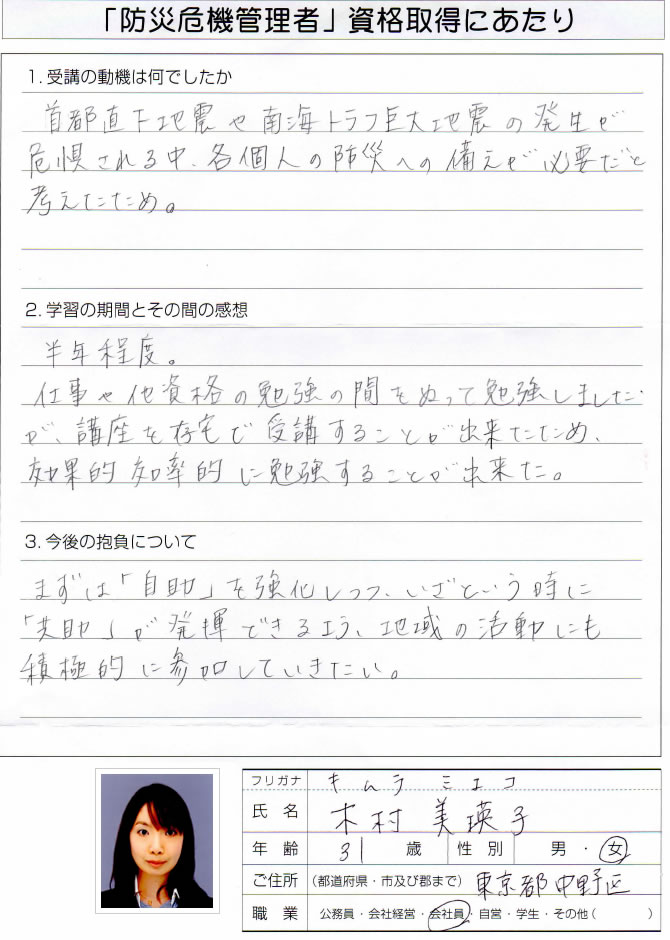 「防災危機管理者」資格取得にあたり
1. 受講の動機は何でしたか
首都直下地震や南海トラフ巨大地震の発生が
危惧される中、各個人の防災への備えが必要だと
考えたため。
2. 学習の期間とその間の感想
半年程度。
仕事や他資格の勉強の間をぬって勉強しました
が、講座を在宅で受講することが出来たため、
効果的効率的に勉強することが出来た。
3. 今後の抱負について
まずは「自助」を強化しつつ、いざという時に
「共助」が発揮できるよう、地域の活動にも
積極的に参加していきたい。
フリガナ キムラ ミエコ
氏名 木村 美瑛子
年齢 31 歳 性別 男・女
ご住所 (都道府県・市及び郡まで) 東京都中野区
職業 公務員・会社経営・会社員・自営・学生・その他( )